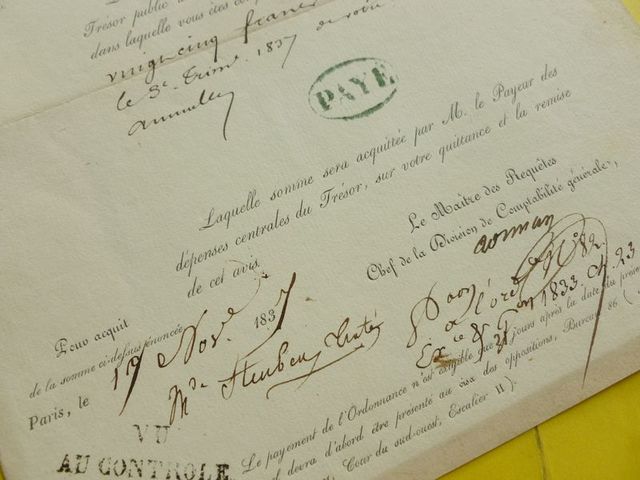 Trésor public
dans laquelle vous êtes
vingt cinq francs
le 3e Trim. 1837 de votre
annuelle
PAYÉ
Laquelle somme sera acquittée par M. le Payeur des
dépenses centrales du Trésor, sur votre quittance et la remise
de cet avis.
Le Maître des Requêtes
Chef de la Division de Comptabilité générale,
Pour acquit
de la somme ci-dessus énoncée
Paris, le 17 Nov. 1837
Mde Steuben
No 82.
1833. Ch. 23
Le payement de l'Ordonnance n'est exigible que jours après la date du
devra d'abord être présenté au visa des oppositions, Bureau 86 (
Cour du sud-ouest, Escalier II).
VU
AU CONTROLE